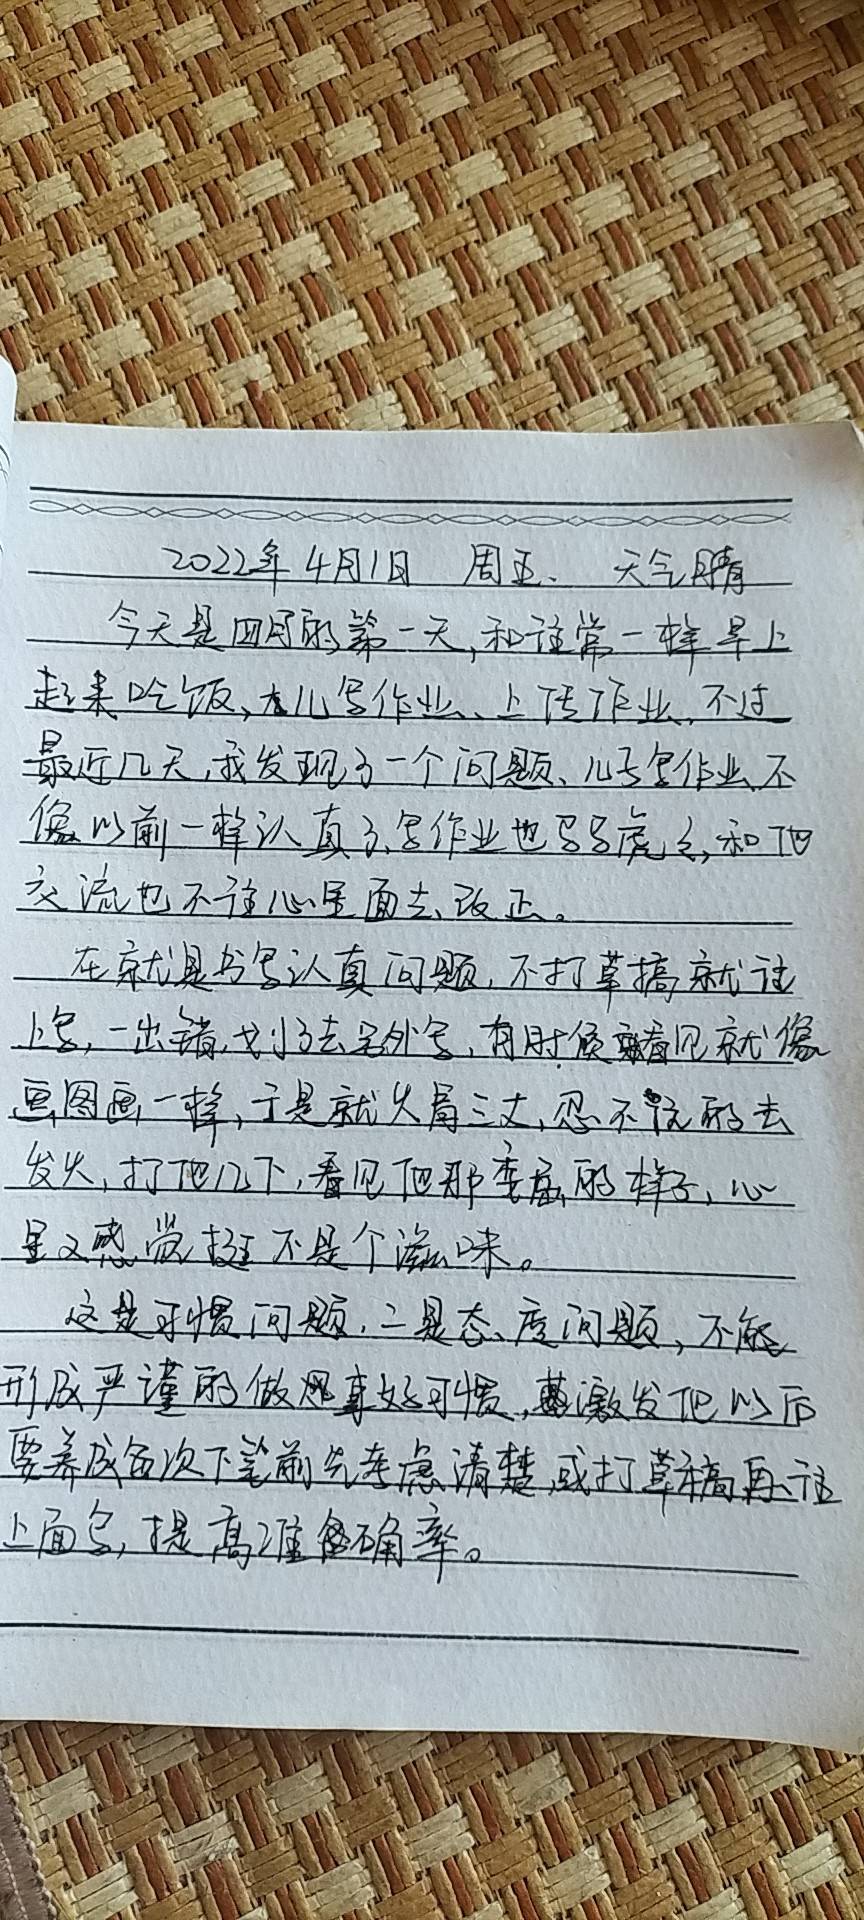 2022年4月1日 周五、 天气晴
今天是四月的第一天,和往常一样早上
起来吃饭、大儿写作业、上传作业,不过
最近几天,我发现了一个问题、儿子写作业不
像以前一样认真了,写作业也马马虎虎,和他
交流也不往心里面去、改正。
在就是书写认真问题,不打草搞就往
上写,一出错,划了去另外写,有时候看见就像
画图画一样,于是就火冒三丈,忍不住的去
发火,打他几下,看见他那委屈的样子,心
里又感觉挺不是个滋味。
这是习惯问题,二是态度问题,不能
形成严谨的做事好习惯,激发他以后
要养成每次下笔前先考虑清楚,或打草稿再往
上面写,提高准确率。